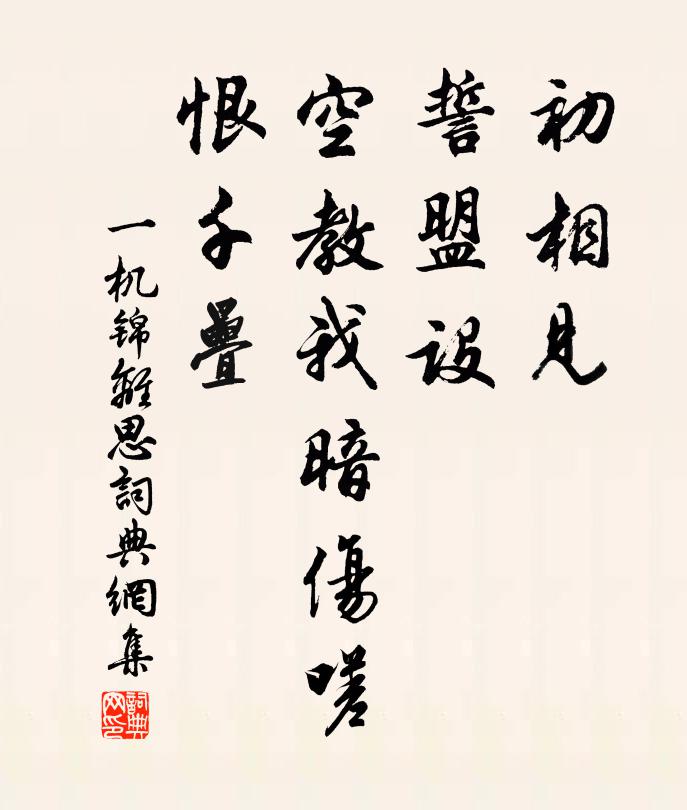 初相見
誓盟設
空教我暗傷嗟
恨千疊
一机锦離思詞典網集
詞典
网印